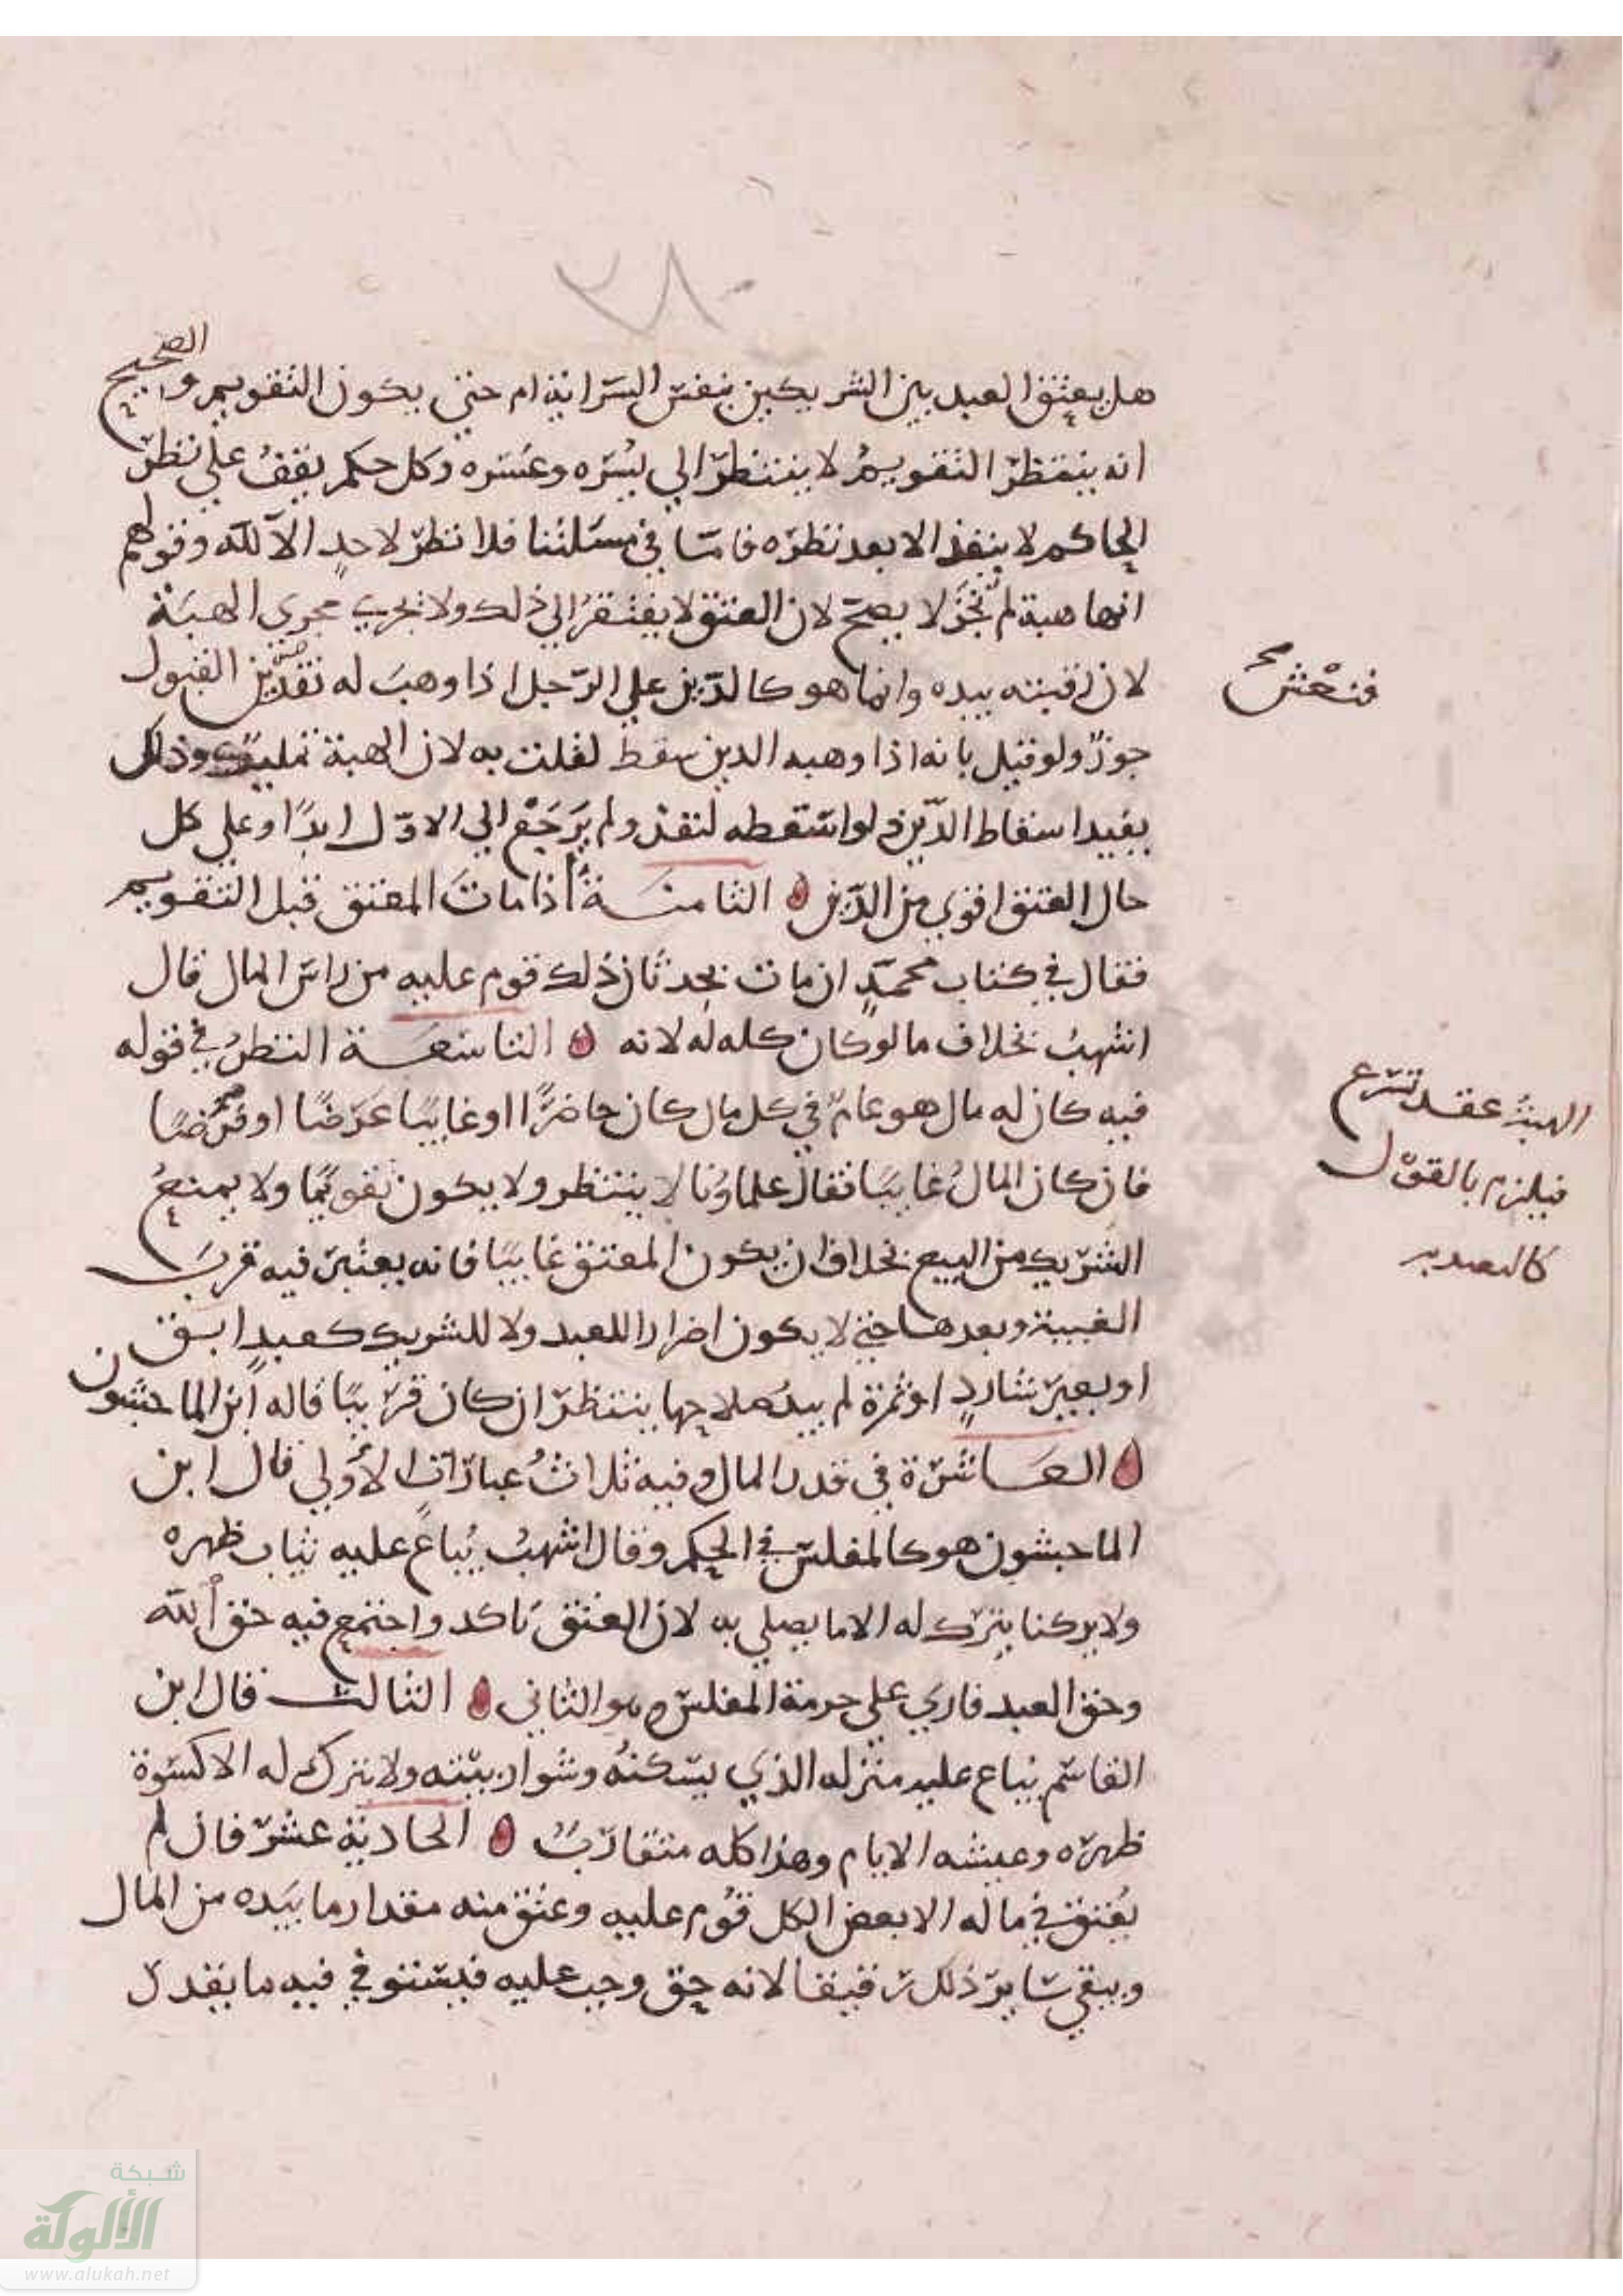 هل يعتق العبد بين الشريكين بنفس السراية ام حتى يكون التقويم والصحيح
انه ينتظر التقويم لا ينتظر الي يسره وعسره وكل حكم يقف علي نظر
الحاكم لا ينفذ الا بعد نظره فامّا في مسئلتنا فلا نظر لاحدٍ الا لله وقولهم
انها هبة لم تُحَز لا يصح لان العتق لا يفتقر الي ذلك ولا يجري مجرى الهبة
لان رقبته بيده وانما هو كالدّين علي الرّجل اذا وهبَ له القبول
جوزٌ ولو قيل بانه اذا وهبه الدين سقط لقلت به لان الهبة تمليك وذلك
يفيد اسقاط الدّين ولو اسقطه لنفذ ولم يَرجَع الي الاوّل ابدًا وعلي كل
حال العتق اقوي من الدّين الثامنة اذا ماتَ المعتق قبل التقويم
فقال في كتاب محمدٍ ان مات بحدثان ذلك قوم عليه من راس المال قال
اشهبُ بخلاف ما لو كان كله له لانه التاسعة النظرُ في قوله
فيه كان له مال هو عامٌ في كل مال كان حاضرًا او غايبًا عَرَضًا او قرضًا
فان كان المالُ غايبًا فقال علماؤنا لا ينتظر ولا يكون تقويمًا ولا يمنعُ
الشريك من البيع بخلاف ان يكون المعتق غايبًا فانه يعتبر فيه قربَ
الغيبة وبعدها حتي لا يكون اضرارا للعبد ولا للشريك كعبدٍ ابق
او بعير شاردٍ او ثمرة لم يبدُ صلاحها ينتظر ان كان قريبًا قاله ابن الماجشون
العاشرة في قدر المال وفيه ثلاثُ عباراتٍ الأولي قال ابن
الماجشون هو كالمفلس في الحكم وقال اشهبُ يُباعُ عليه ثياب ظهره
ولا يترك له الا ما يصلي به لان العتق تاكد واجتمع فيه حق الله
وحق العبد فاربي علي حرمة المفلس وهو الثاني الثالث قال ابن
القاسم يباع عليه منزله الذي يسكنهُ وشوار بيته ولا يترك له الا كسوة
ظهره وعيشه الايام وهذا كله متقاربٌ الحادية عشر فان لم
يُعتق في ماله الا بعض الكل قُوم عليه وعتق منه مقدار ما بيَده من المال
ويبقي سايرُ ذلك رقيقا لانه حق وجب عليه فيستوفي فيه ما يقدر
الهبة عقد تبرع
فيلزم بالقوْل